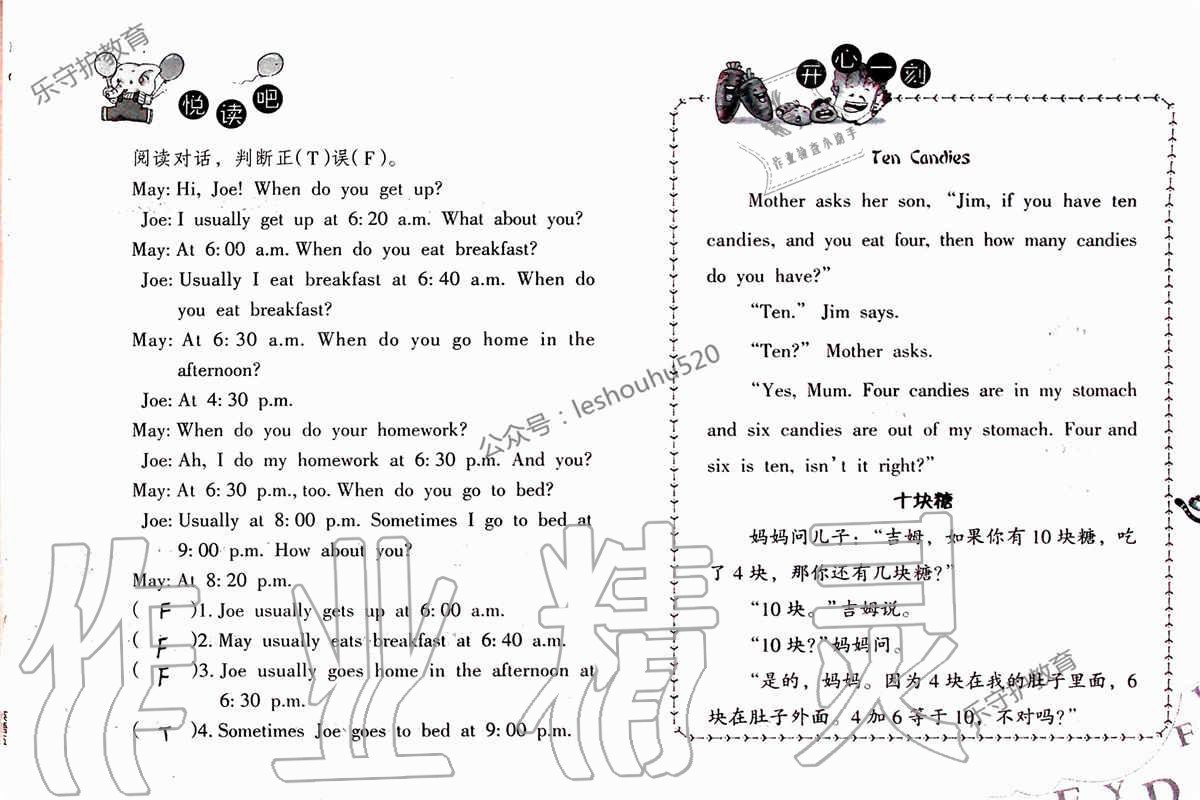 乐守护教育
悦读吧
阅读对话，判断正(T)误(F)。
May: Hi, Joe! When do you get up?
Joe: I usually get up at 6:20 a.m. What about you?
May: At 6:00 a.m. When do you eat breakfast?
Joe: Usually I eat breakfast at 6:40 a.m. When do
you eat breakfast?
May: At 6:30 a.m. When do you go home in the
afternoon?
Joe: At 4:30 p.m.
May: When do you do your homework?
Joe: Ah, I do my homework at 6:30 p.m. And you?
May: At 6:30 p.m., too. When do you go to bed?
Joe: Usually at 8:00 p.m. Sometimes I go to bed at
9:00 p.m. How about you?
May: At 8:20 p.m.
( F )1. Joe usually gets up at 6:00 a.m.
( F )2. May usually eats breakfast at 6:40 a.m.
( F )3. Joe usually goes home in the afternoon at
6:30 p.m.
( T )4. Sometimes Joe goes to bed at 9:00 p.m.
公众号：leshouhu520
作业精灵
开心一刻
作业检查小助手
Ten Candies
Mother asks her son, “Jim, if you have ten
candies, and you eat four, then how many candies
do you have?”
“Ten.” Jim says.
“Ten?” Mother asks.
“Yes, Mum. Four candies are in my stomach
and six candies are out of my stomach. Four and
six is ten, isn't it right?”
十块糖
妈妈问儿子：“吉姆，如果你有10块糖，吃
了4块，那你还有几块糖？”
“10块。”吉姆说。
“10块？”妈妈问。
“是的，妈妈。因为4块在我的肚子里面，6
块在肚子外面。4加6等于10，不对吗？”
乐守护教育
F
E Y D